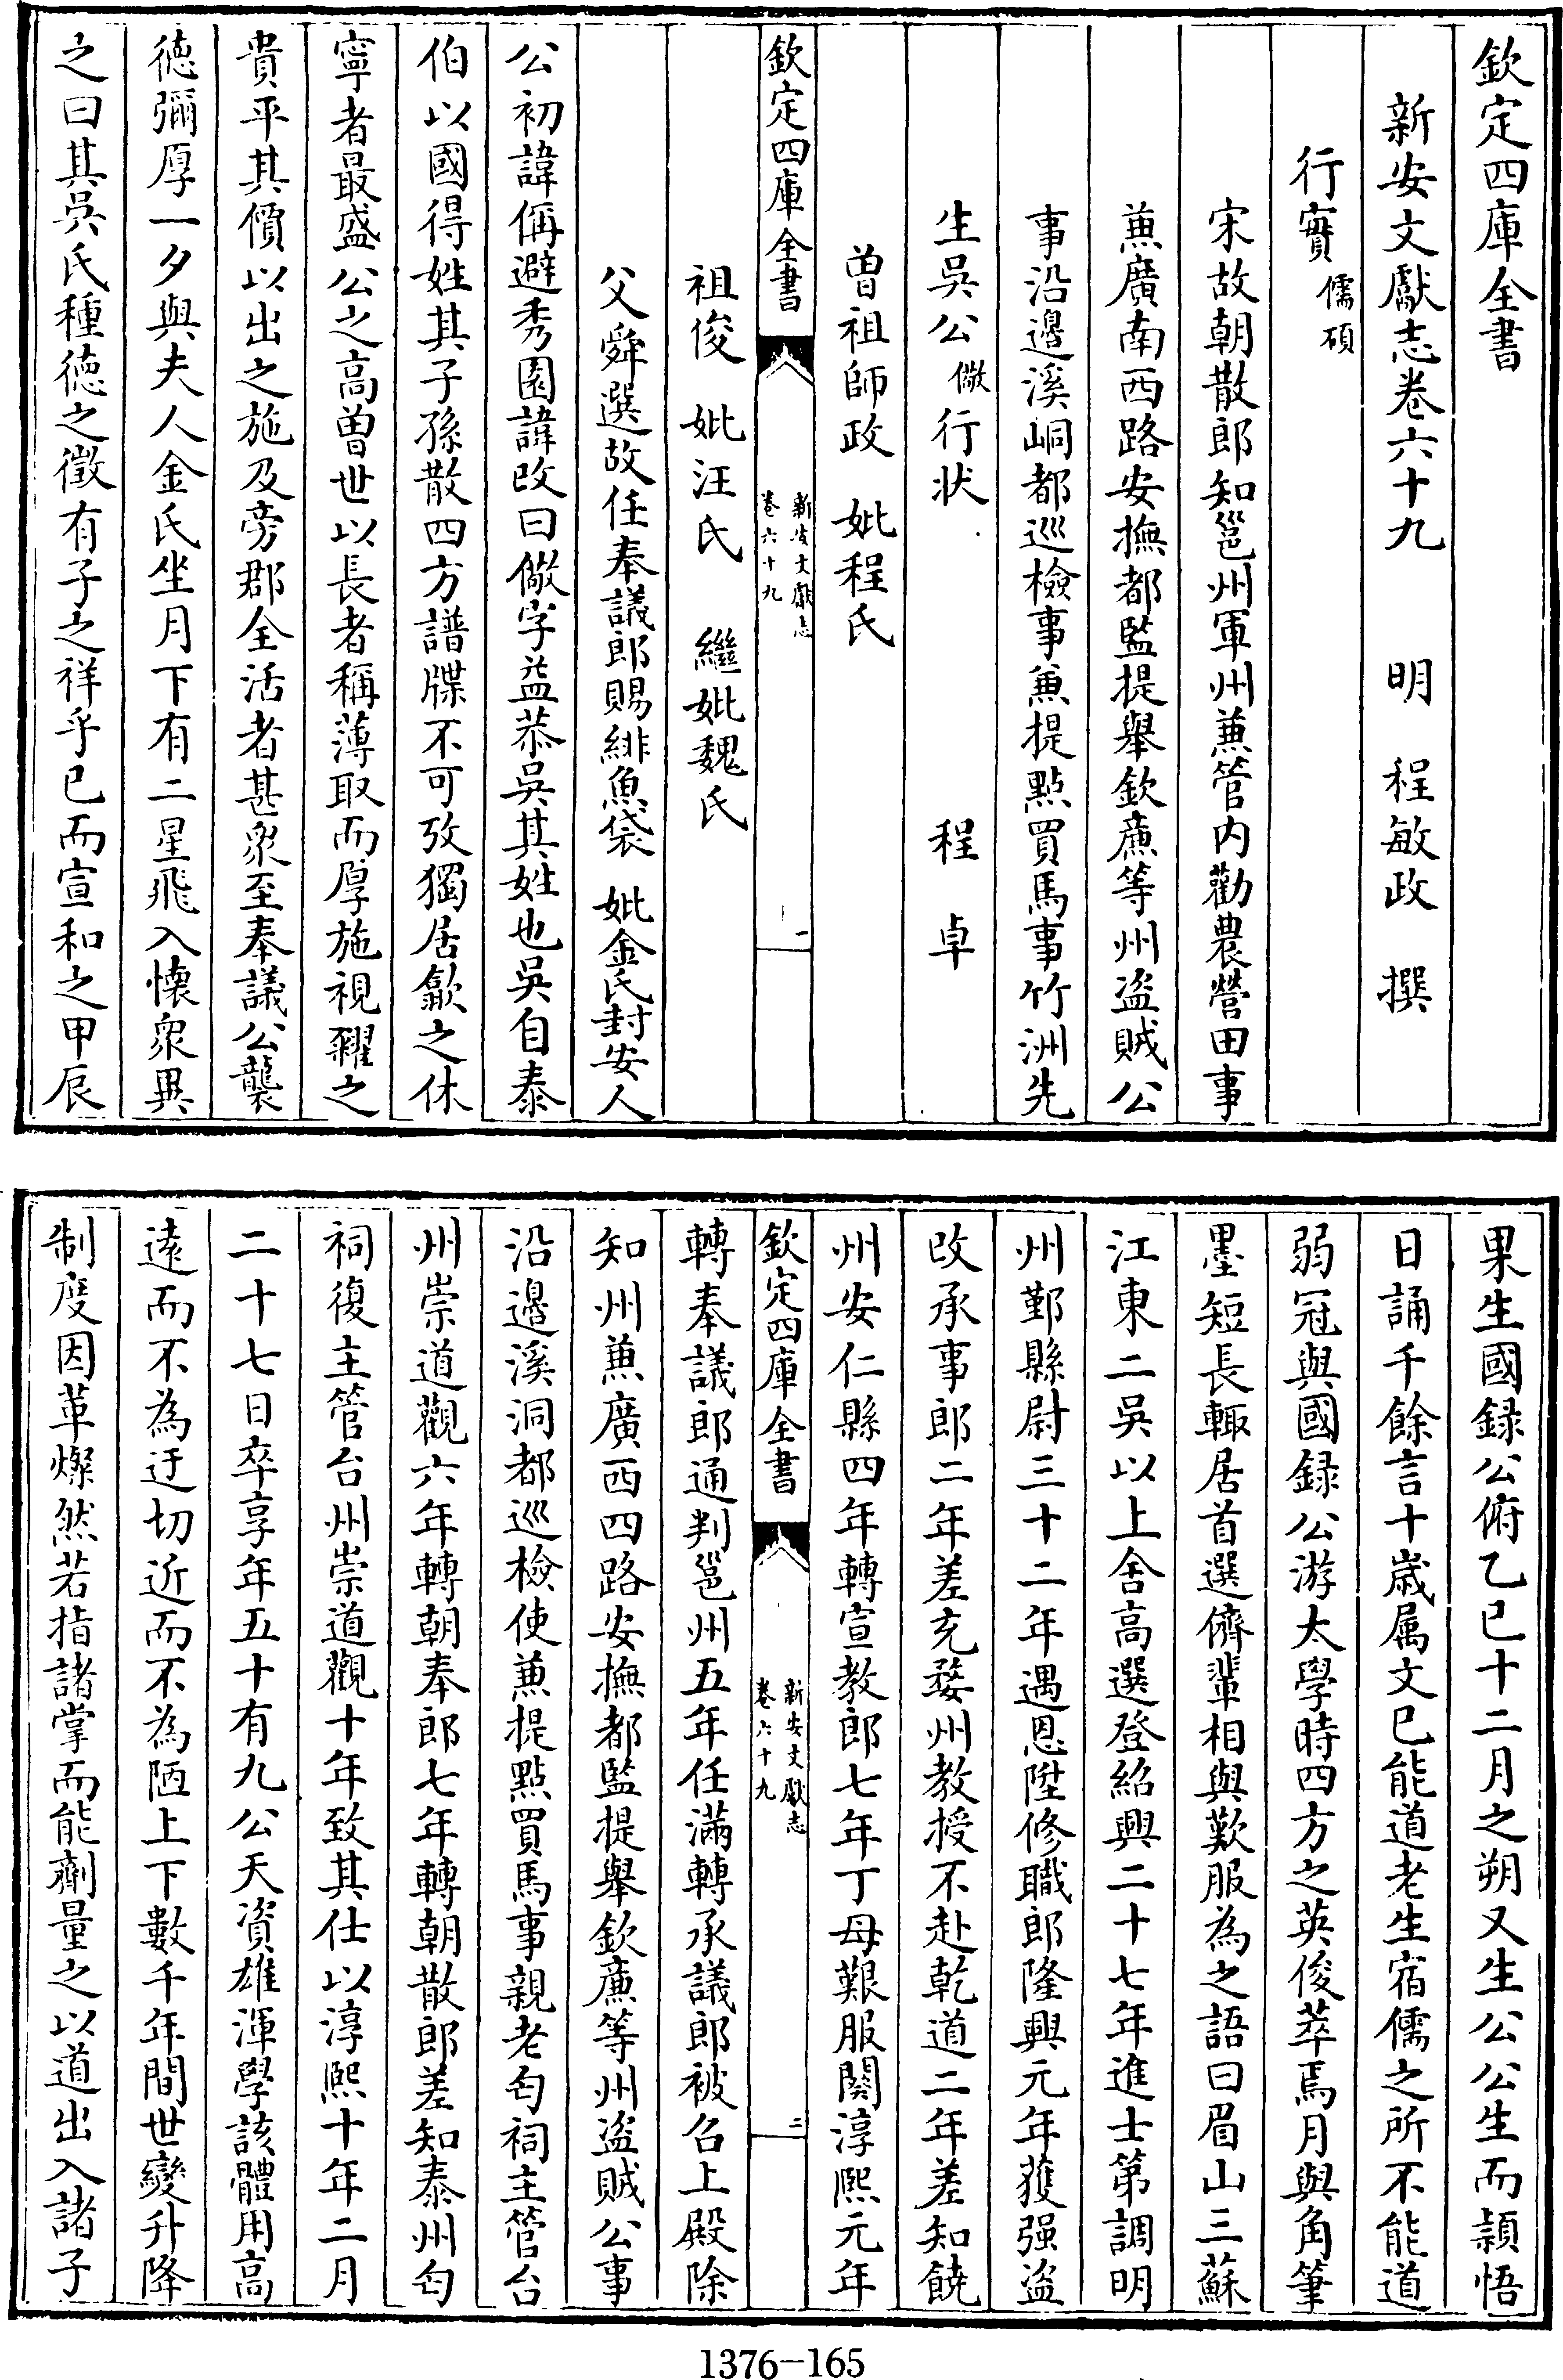 欽定四庫全書
新安文獻志卷六十九　明　程敏政　撰
行實儒碩
宋故朝散郎知邕州軍州兼管内勸農營田事
兼廣南西路安撫都監提舉欽亷等州盗賊公
事沿邊溪峒都巡檢事兼提點買馬事竹洲先
生吳公儆行状　程卓
曽祖師政　妣程氏
欽定四庫全書　新安文獻志卷六十九　一
祖俊　妣汪氏　繼妣魏氏
父舜選故任奉議郎賜緋魚袋　妣金氏封安人
公初諱偁避秀園諱改曰儆字益恭吳其姓也吳自泰
伯以國得姓其子孫散四方譜牒不可攷獨居歙之休
寧者最盛公之高曽世以長者稱薄取而厚施視糴之
貴平其價以出之施及旁郡全活者甚衆至奉議公襲
徳彌厚一夕與夫人金氏坐月下有二星飛入懐衆異
之曰其吳氏種徳之徵有子之祥乎已而宣和之甲辰
果生國録公俯乙巳十二月之朔又生公公生而頴悟
日誦千餘言十嵗属文已能道老生宿儒之所不能道
弱冠與國録公游太學時四方之英俊萃焉月與角筆
墨短長輙居首選儕輩相與歎服為之語曰眉山三蘇
江東二吳以上舍高選登紹興二十七年進士第調明
州鄞縣尉三十二年遇恩陞修職郎隆興元年獲强盗
改承事郎二年差充婺州教授不赴乾道二年差知饒
州安仁縣四年轉宣教郎七年丁母艱服闋淳熙元年
欽定四庫全書　新安文獻志卷六十九　二
轉奉議郎通判邕州五年任滿轉承議郎被召上殿除
知州兼廣西四路安撫都監提舉欽亷等州盗賊公事
沿邊溪洞都巡檢使兼提點買馬事親老匄祠主管台
州崇道觀六年轉朝奉郎七年轉朝散郎差知泰州匄
祠復主管台州崇道觀十年致其仕以淳熙十年二月
二十七日卒享年五十有九公天資雄渾學該體用高
遠而不為迂切近而不為陋上下數千年間世變升降
制度因革燦然若指諸掌而能劑量之以道出入諸子
1376-165